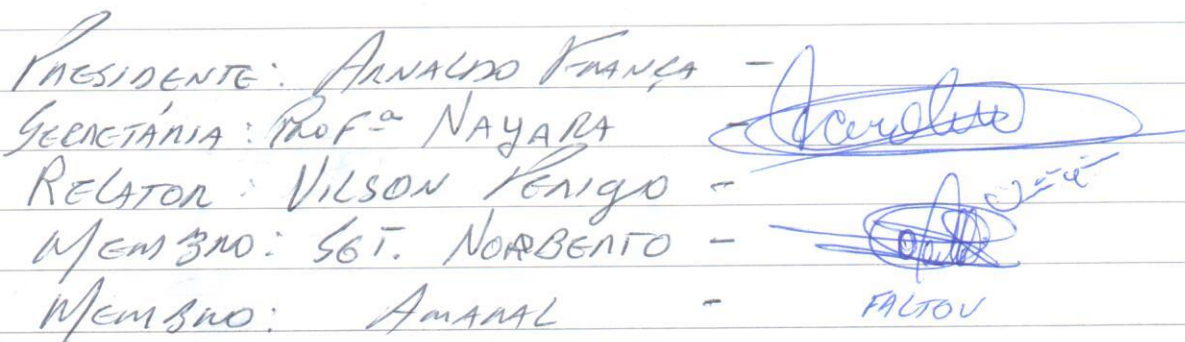 PRESIDENTE: ARNALDO FRANÇA -
SECRETÁRIA: PROFª NAYARA -
RELATOR: VILSON PERIGO -
MEMBRO: SGT. NORBERTO -
MEMBRO: AMARAL - FALTOU